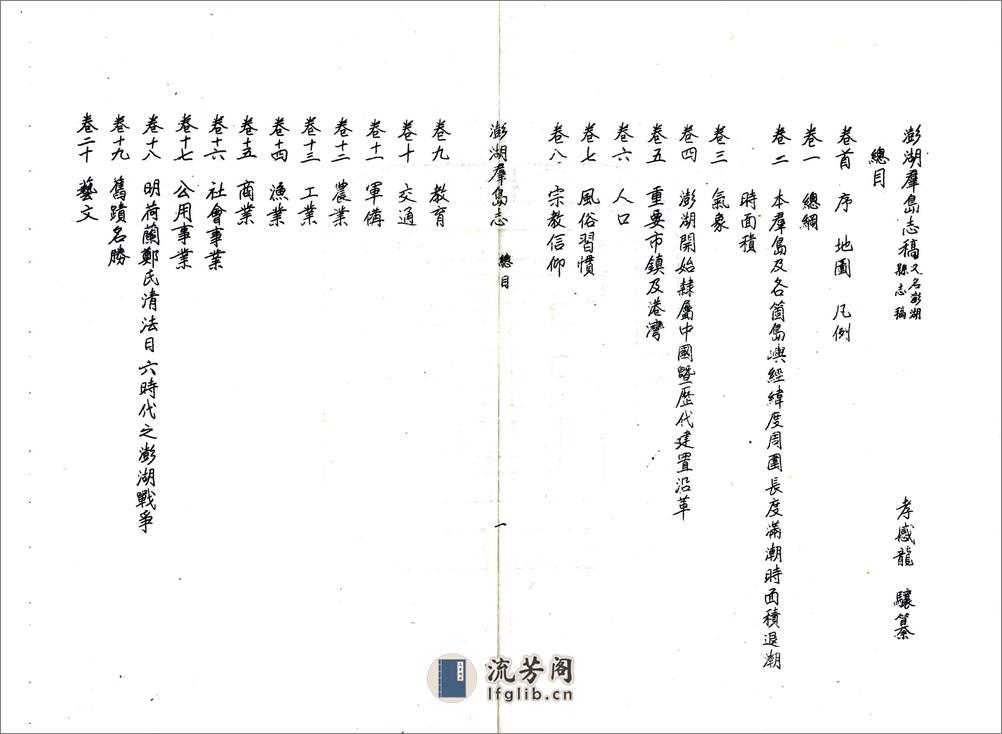 澎湖羣島志稿 又名澎湖縣志稿
孝感龍 驤纂
總目
卷首 序 地圖 凡例
卷一 總綱
卷二 本羣島及各箇島嶼經緯度周圍長度滿潮時面積退潮
時面積
卷三 氣象
卷四 澎湖開始隸屬中國暨歷代建置沿革
卷五 重要市鎮及港灣
卷六 人口
卷七 風俗習慣
卷八 宗教信仰
澎湖羣島志 總目 一
卷九 教育
卷十 交通
卷十一 軍備
卷十二 農業
卷十三 工業
卷十四 漁業
卷十五 商業
卷十六 社會事業
卷十七 公用事業
卷十八 明荷蘭鄭氏清法日六時代之澎湖戰爭
卷十九 舊蹟名勝
卷二十 藝文
流芳阁
lfglib.cn